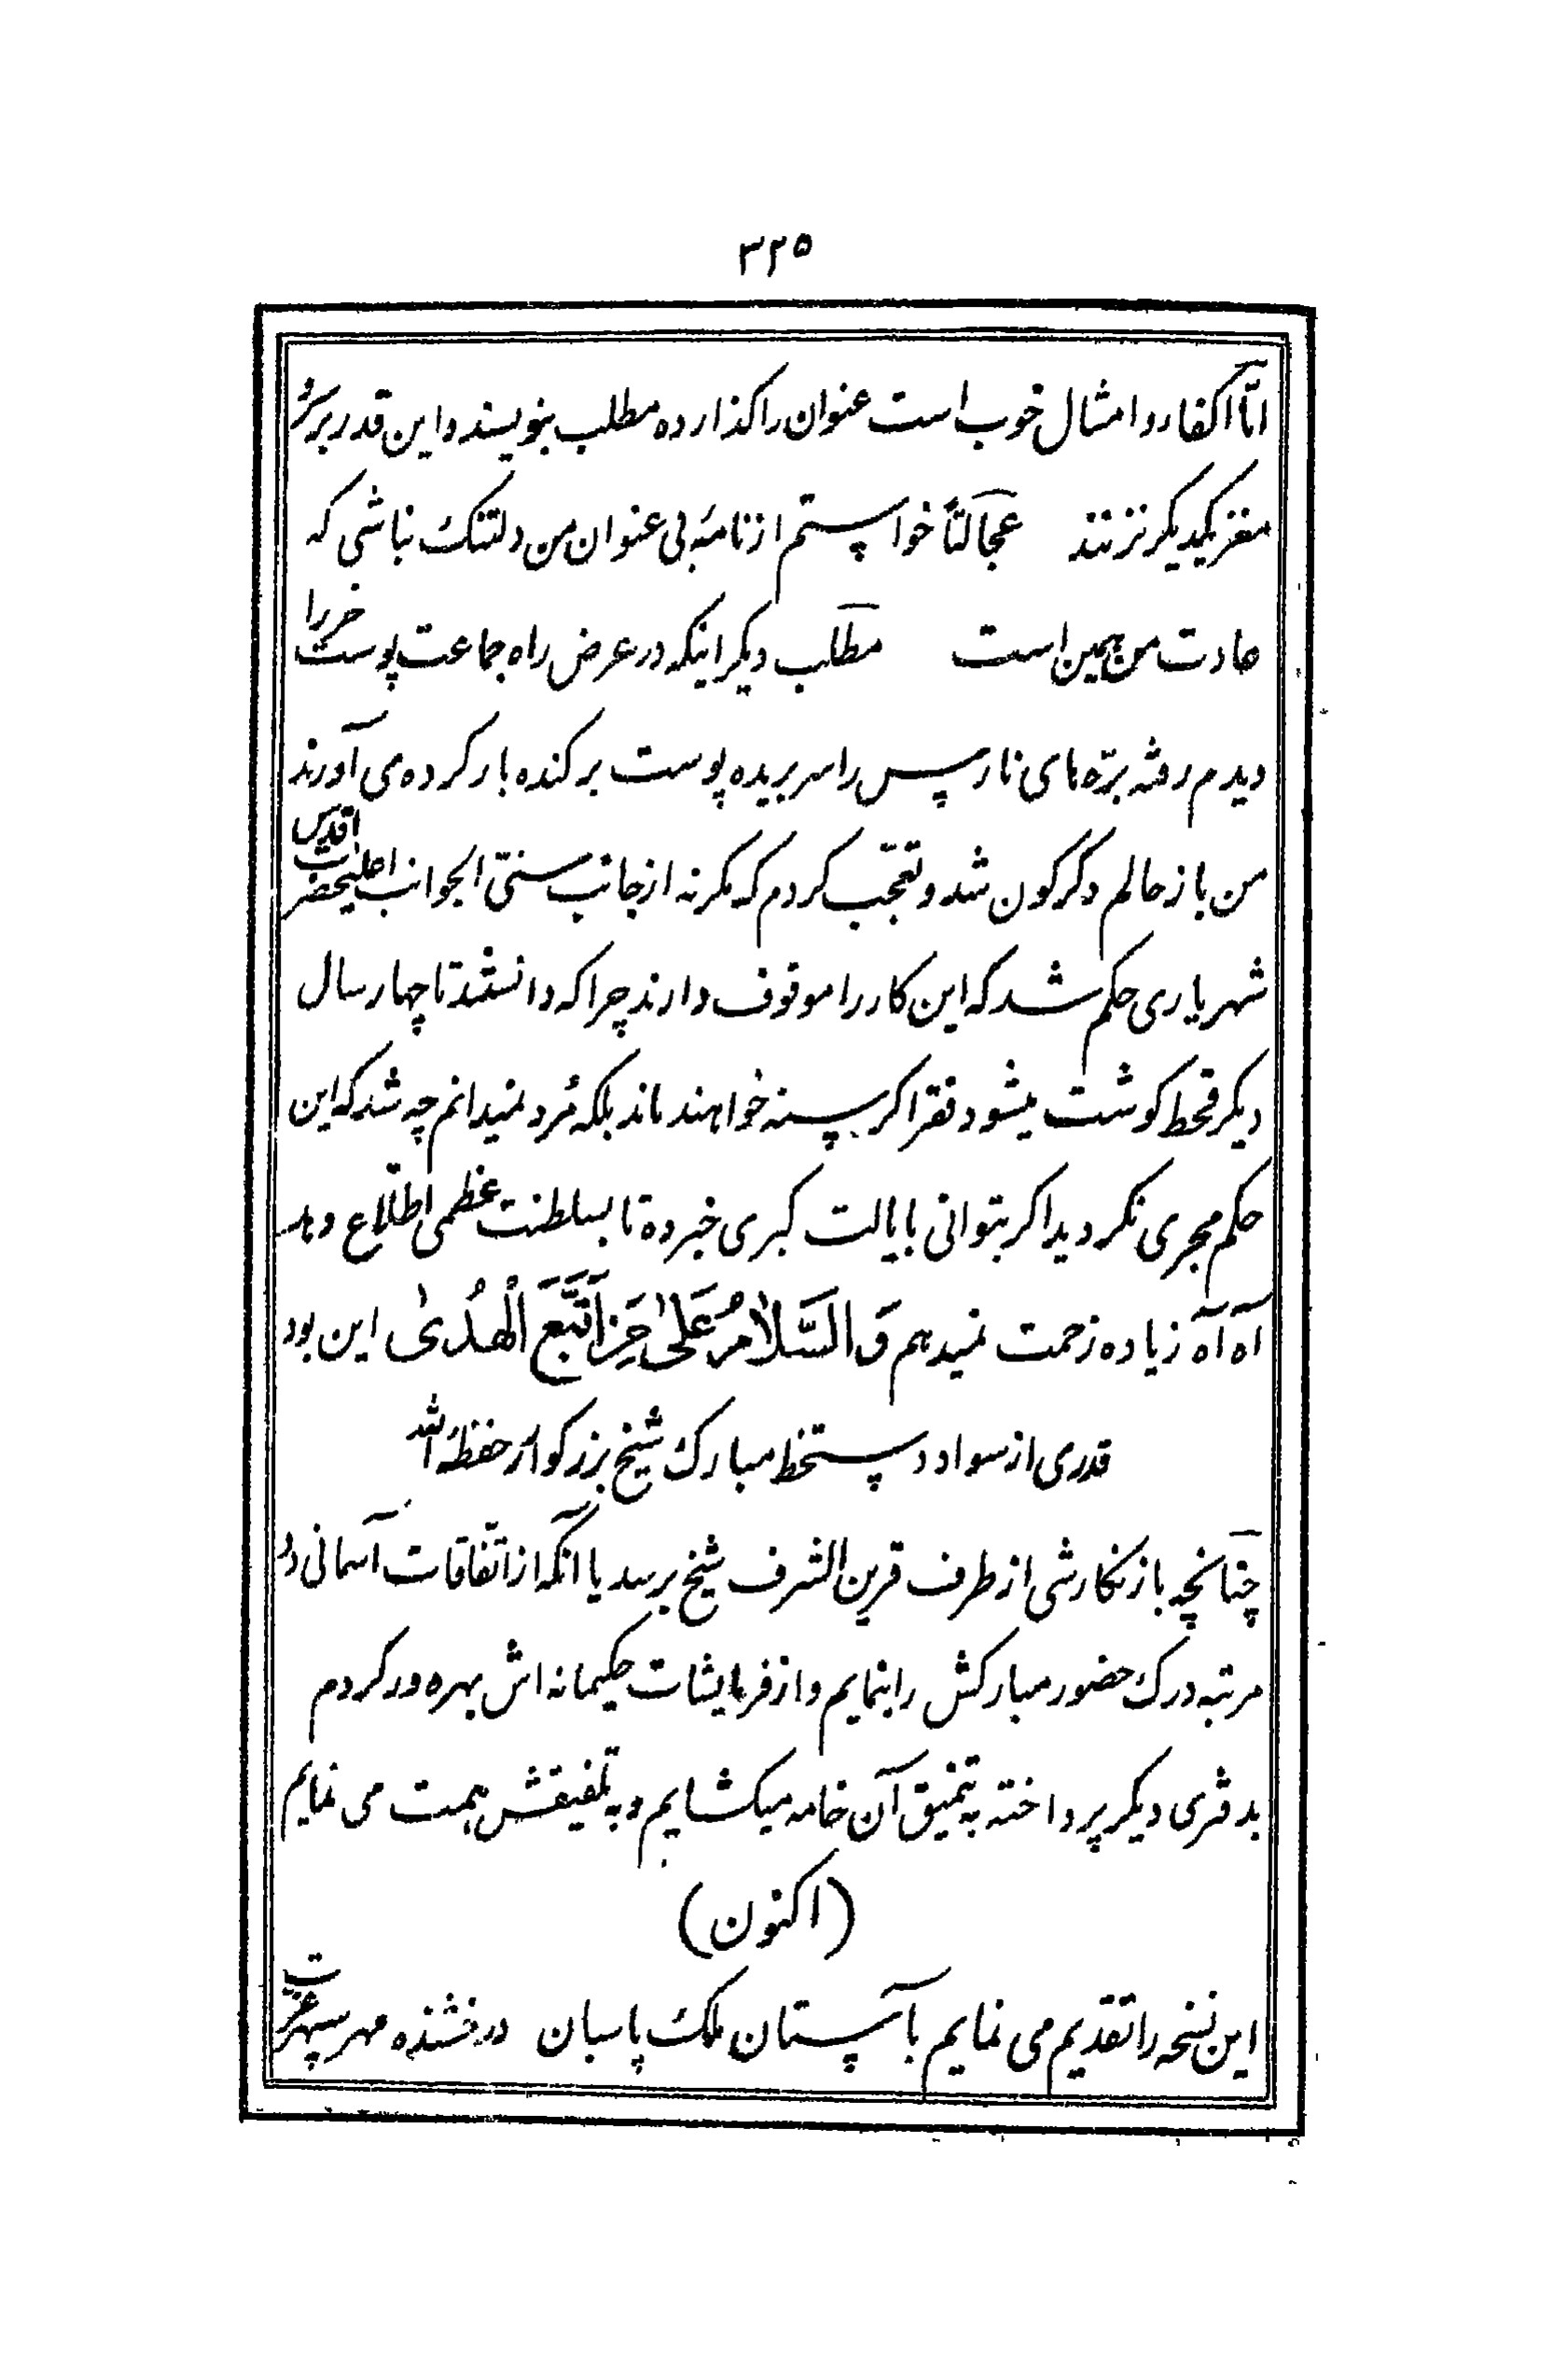 ۳۲۵
امّا اکفا رو امثال خوب است عنوان را کذارده مطلب بنویسند و این قدر بر سر
مغز یکدیکر نزنند عجالتاً خواستم از نامهٔ بی عنوان من دلتنک نباشی که
عادت من همین است مطلب دیکر اینکه در عرض راه جماعت پوست خر را
دیدم رفته برّه های نارس را سر بریده پوست بر کنده بار کرده می آورند
من باز حالم دکر کون شد و تعجّب کردم که مکر نه از جانب سنیّ الجوانب اعلیحضرت اقدس
شهریاری حکم شد که این کار را موقوف دارند چرا که دانستند تا چهار سال
دیکر قحط کوشت میشود فقرا کرسنه خواهند ماند بلکه مُرد نمیدانم چه شد که این
حکم مجری نکردید اکر بتوانی بایالت کبری خبر ده تا بسلطنت عظمی اطّلاع دهد
آه آه زیاده زحمت نمیدهم وَالسَّلَامُ عَلیٰ مَنِ اتَّبَعَ الْهُدیٰ این بود
قدری از سواد دستخط مبارک شیخ بزرکوار حفظهُ الله
چنانچه باز نکارشی از طرف قرین الشرف شیخ برسد یا آنکه از اتّفاقات آسمانی دو
مرتبه درک حضور مبارکش را نمایم و از فرمایشات حکیمانه اش بهره ور کردم
بدفتری دیکر پرداخته به تنمیق آن خامه میکشایم و به تلفیقش همت می نمایم
(اکنون)
این نسخه را تقدیم می نمایم بآستان ملک پاسبان درخشنده مهر سپهر عزّت